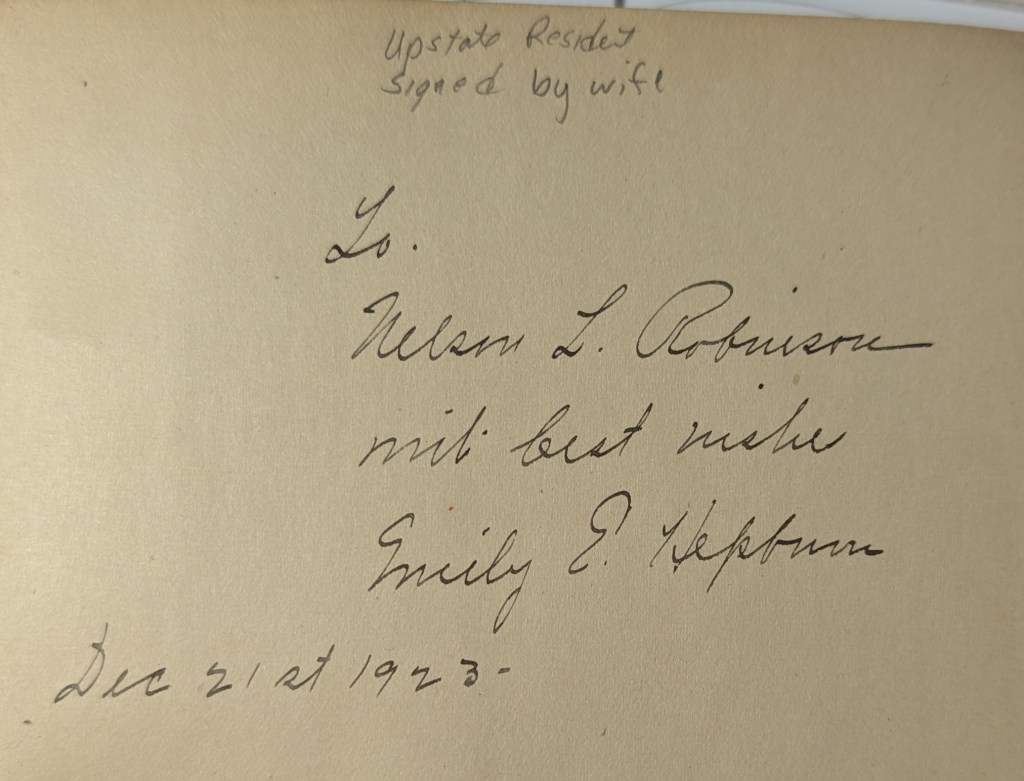 Upstate Resident
signed by wife
To.
Nelson L. Robinson
with best wishes
Emily E. Hepburn
Dec 21st 1923-